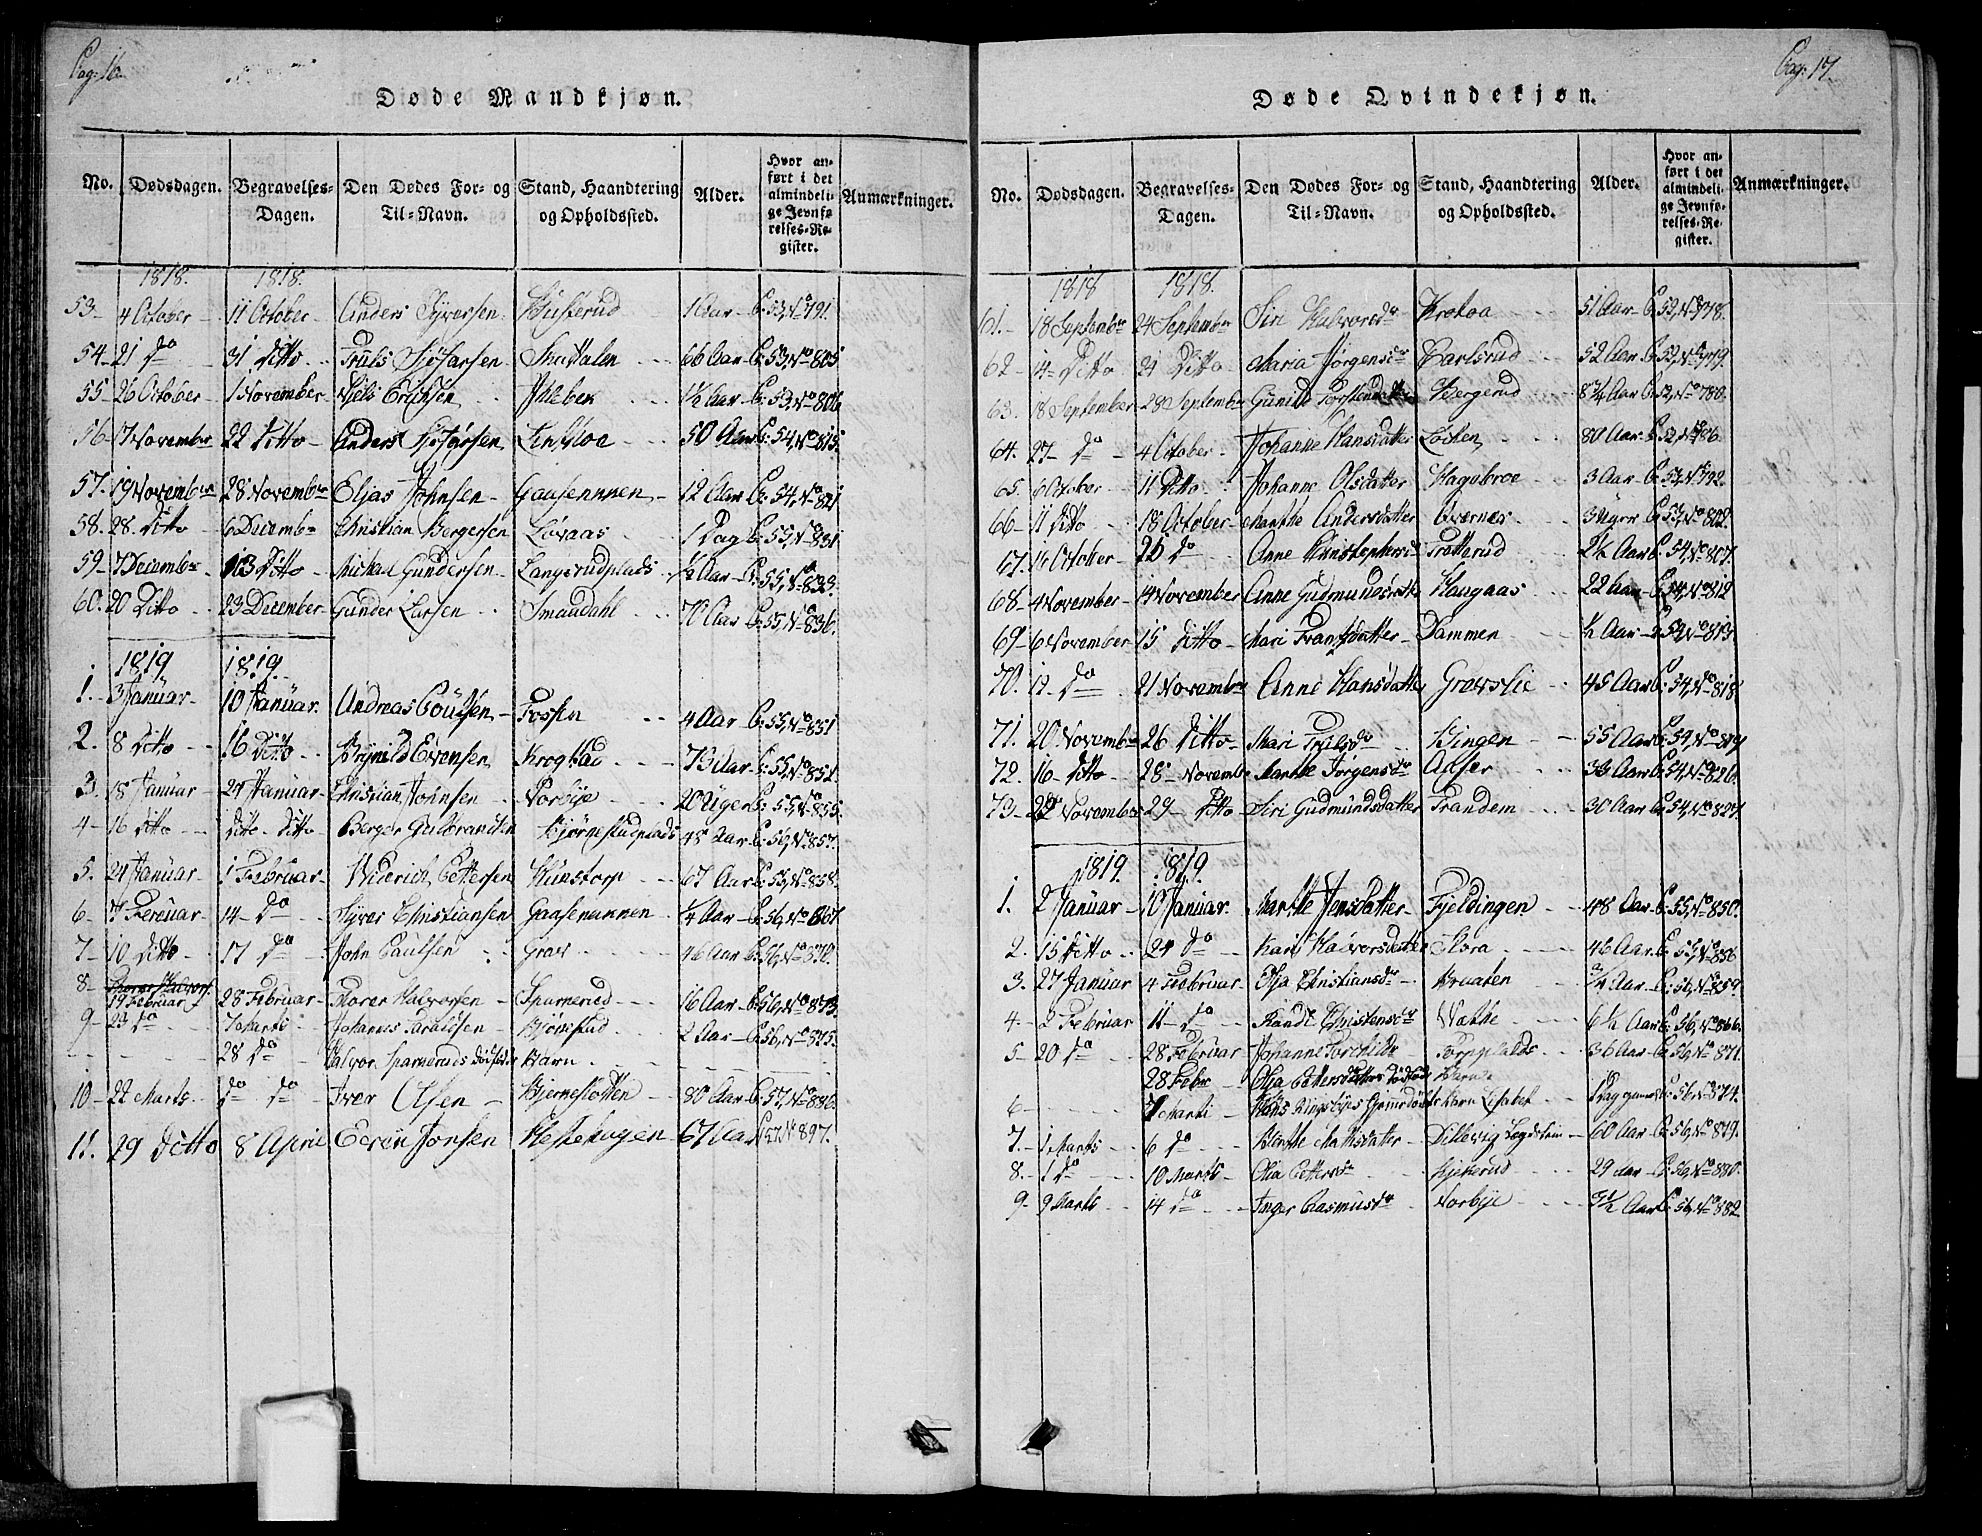 Pag: 16
Døde Mandkjøn.
No. Dødsdagen. Begravelses-Dagen. Den Dødes For- og Til-Navn. Stand, Haandtering og Opholdssted. Alder. Hvor anført i det almindelige Jevnførelses-Register. Anmærkninger.
1818. 1818.
53 4 October 11 October Anders Syversen 1 Aar P: 53, No 791.
54 21 do 31 Ditto Truls 66 Aar P: 53, No 805
55 26 October 1 November Niels Erichsen 1½ Aar P: 53, No 806
56 17 November 22 Ditto Anders 50 Aar P: 54, No 815
57 19 November 28 November Elias Johnsen Gaasenunnen 12 Aar P: 54, No 821
58 28 Ditto 6 Decembr Christian Bergersen Løvaas 1 Dag P: 55, No 831
59 7 Decembr 13 Ditto Michal Gundersen Langerudplads ½ Aar P: 55, No 833.
60. 20 Ditto 23 December Gunder Larsen Smaadahl 70 Aar P: 55, No 836.
1819 1819.
1. 3 Januar 10 Januar Andreas Poulsen Fossen 4 Aar P: 55, No 851
2. 8 Ditto 16 Ditto Brynild Evensen Krogstad 73 Aar P: 55, No 852
3. 18 Januar 24 Januar Christian Johnsen Norbye 20 Uger P: 55, No 855.
4 16 Ditto Ditto Ditto Berger Gulbrandsen Bjørnestadplads 48 Aar P: 56, No 857.
5. 24 Januar 1 Februar Diderich Pettersen Hunstorp 67 Aar P: 55, No 858.
6 7 Februar 14 do Syver Christiansen Gaasenunnen ¼ Aar P: 56, No 867
7 10 Ditto 17 do John Paulsen Grav 46 Aar P: 56, No 870.
8 19 Februar 28 Februar Thorer Halvorsen Sparnerud 16 Aar P: 56, No 873.
9 23 do 7 Marts Johannes Bjørnstad 2 Aar P: 56, No 875.
28 do Halvor Sparneruds Barn
10 22 Marts do do Iver Olsen 80 Aar P: 57, No 886.
11. 29 Ditto 8 April Even Jonsen Hestehagen 67 Aar P 57 No 897.
Pag: 17
Døde Qvindekjøn.
No. Dødsdagen. Begravelses-Dagen. Den Dødes For- og Til-Navn. Stand, Haandtering og Opholdssted. Alder. Hvor anført i det almindelige Jevnførelses-Register. Anmærkninger.
1818 1818.
61. 18 Septembr 24 Septembr Siri Halvorsdr Krokaa 51 Aar P: 52, No 778.
62 14 Ditto 21 Ditto Maria Jørgensdr Carlsrud 52 Aar P: 52, No 779.
63. 18 September 28 Septembr Gunild Torstensdatter Bergerud 8¾ Aar P: 52, No 780.
64. 27 do 4 October Johanne Hansdatter Løchen 80 Aar P: 52, No 786
65. 6 October 11 Ditto Johanne Olsdatter Hagebroe 3 Aar P: 53, No 792.
66 11 Ditto 18 October Marthe Andersdatter Overnes 3 Uger P: 53, No 802.
67. 16 October 26 do Anne Christophersdr Tratterud 2½ Aar P: 54, No 807.
68 4 November 14 November Anne Gudmundsdatr Haugaas 22 Aar P: 54, No 812
69 6 November 15 Ditto Mari Frantsdatter Dammen ½ Aar P: 54, No 813
70. 12 do 21 Novembr Anne Hansdatter Gravslie 45 Aar P: 54, No 818
71. 20 Novembr 26 Ditto Mari Trulsdr Bingen 55 Aar P: 54, No 819
72. 16 Ditto 28 Novembr Marthe Jørgensdr Aaser 33 Aar P: 54, No 826.
73 22 Novembr 29 Ditto Siri Gudmundsdatter Trandem 30 Aar P: 54, No 827.
1819. 1819.
1. 2 Januar 10 Januar. Marthe Jensdatter Fjeldingen 48 Aar P: 55, No 850.
2. 15 Ditto 24 do Kari Halvorsdatter Flora 46 Aar P: 55, No 856
3. 27 Januar 4 Februar Olja Christiansdr Braaten ¾ Aar P: 56, No 859.
4 2 Februar 11 do Randi Christensdr Vøthe 6½ Aar P: 56, No 866.
5 20 do 28 Februar Johanne Torchildsdr Torpeplads 36 Aar P: 56, No 871.
28 Febr Olja Pettersdatters dødfødte Barn
6 7 Marts Hans Ringsbyes hiemmedøbte Barn Lisabet 1 Dag gammel P: 56, No 874.
7. 1 Marts 6 do Birthe Mathisdatter Dillevig 60 Aar P: 56, No 879.
8. 1 do 10 Marts Olia Pettersdr Kjekerud 29 Aar P: 56, No 880.
9 9 Marts 14 do Inger Rasmusdr Norbye 5½ Aar P: 56, No 882